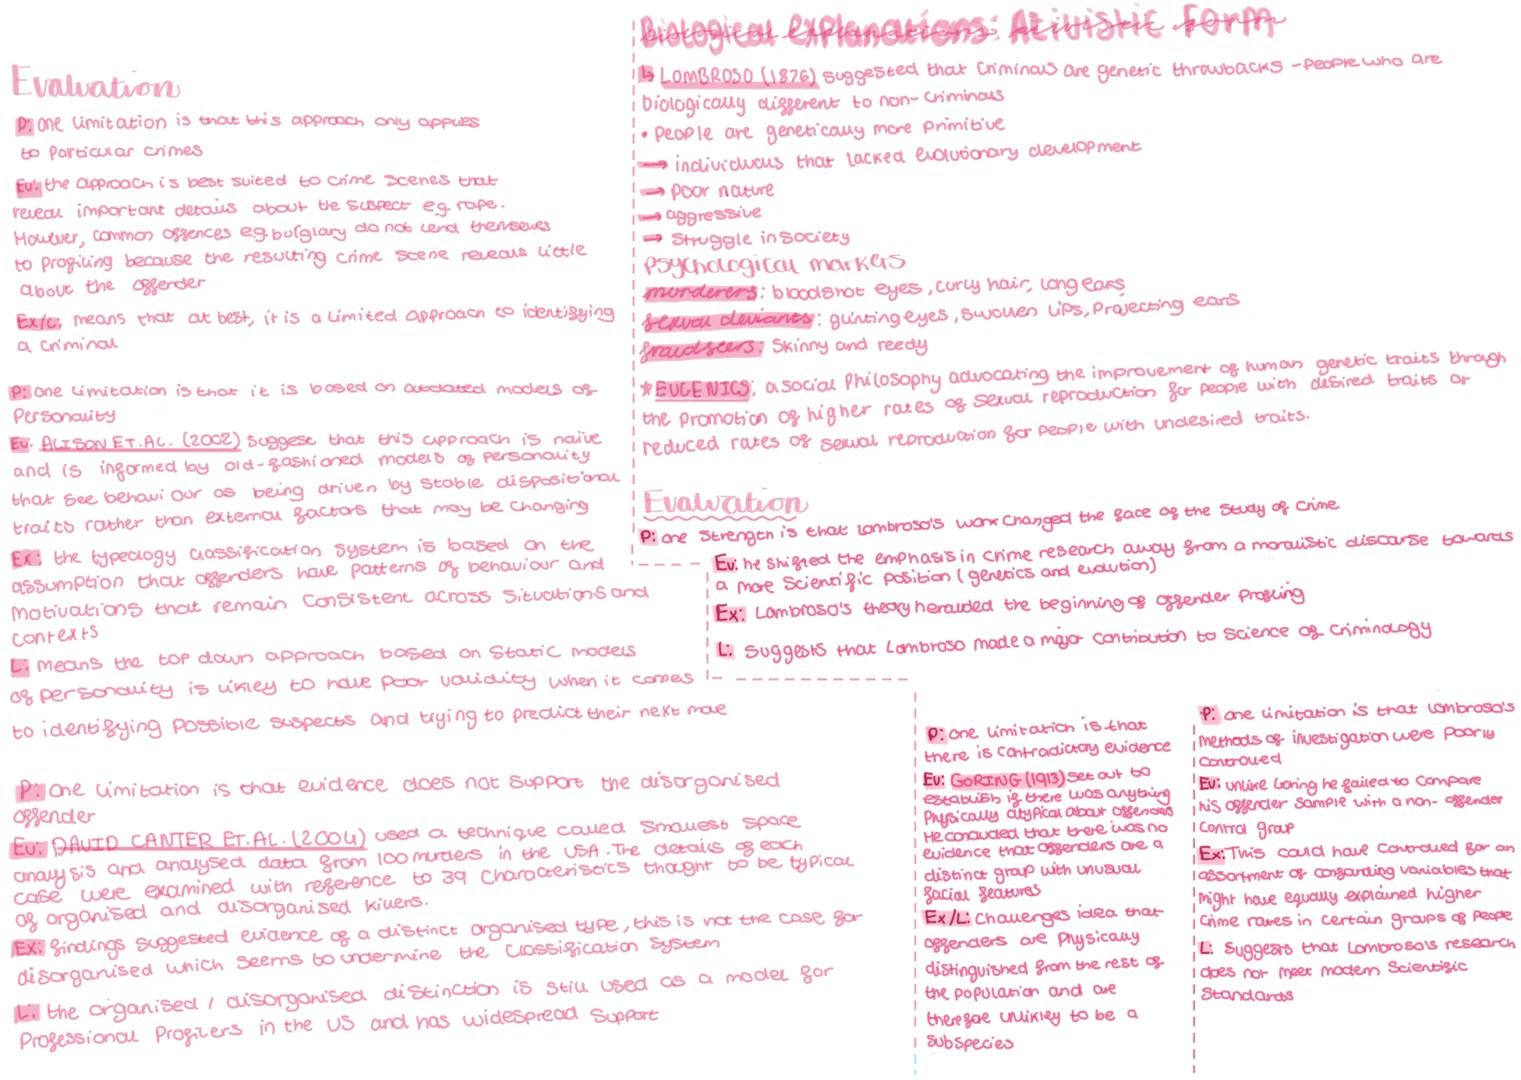 Evaluation
P: one limitation is that this approach only applies
to Particular crimes
Ev: the approach is best suited to crime scenes that
reveal important details about the suspect eg. rape.
However, common offences eg. burglary do not lend themselves
to Profiling because the resulting crime scene reveals little
about the offender
Ex/L: means that at best, it is a limited approach to identifying
a criminal
P: one limitation is that it is based on outdated models of
Personality
Ev: ALISON ET.AL. (2002) suggest that this approach is naive
and is informed by old-fashioned models of personality
that see behaviour as being driven by stable dispositional
traits rather than external factors that may be changing
Ex: the typology classification system is based on the
assumption that offenders have patterns of behaviour and
motivations that remain consistent across situations and
contexts
L: means the top down approach based on static models
of personality is likley to have poor validity when it comes
to identifying possible suspects and trying to predict their next move
P: one limitation is that evidence does not support the disorganised
offender
Ev: DAVID CANTER ET.AL. (2004) used a technique called smallest space
analysis and analysed data from 100 murders in the USA. The details of each
case were examined with reference to 39 characteristics thought to be typical
of organised and disorganised killers.
Ex: findings suggested evidence of a distinct organised type, this is not the case for
disorganised which seems to undermine the classification system
L: the organised / disorganised distinction is still used as a model for
Professional Profilers in the US and has widespread support
Biological Explanations: Ativistic Form
↳ LOMBROSO (1876) suggested that criminals are genetic throwbacks - people who are
biologically different to non-criminals
• People are genetically more primitive
→ individuals that lacked evolutionary development
→ poor nature
→ aggressive
→ struggle in society
Psychological markers
murderers: bloodshot eyes, curly hair, long ears
sexual deviants: glinting eyes, swollen lips, projecting ears
fraudsters: skinny and reedy
* EUGENICS; a social philosophy advocating the improvement of human genetic traits through
the promotion of higher rates of sexual reproduction for people with desired traits or
reduced rates of sexual reproduction for people with undesired traits.
Evaluation
P: one strength is that lombroso's work changed the face of the study of crime
Ev: he shifted the emphasis in crime research away from a moralistic discourse towards
a more scientific position (genetics and evolution)
Ex: Lombroso's theory heralded the beginning of offender profiling
L: suggests that Lombroso made a major contribution to science of criminology
P: one limitation is that
there is contradictory evidence
Ev: GORING (1913) set out to
establish if there was anything
physically atypical about offenders
He concluded that there was no
evidence that offenders are a
distinct group with unusual
facial features
Ex/L: challenges idea that
offenders are physically
distinguished from the rest of
the population and are
therefore unlikley to be a
subspecies
P: one limitation is that lombroso's
methods of investigation were poorly
controlled
Ev: unlike Goring he failed to compare
his offender sample with a non-offender
control group
Ex: This could have controlled for an
assortment of confounding variables that
might have equally explained higher
crime rates in certain groups of people
L: suggests that Lombroso's research
does not meet modern scientific
standards